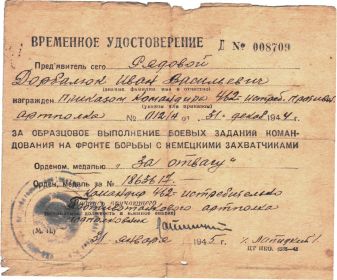 ВРЕМЕННОЕ УДОСТОВЕРЕНИЕ Д № 008709
Пред'явитель сего Рядовой
Дорбалюк Иван Васильевич
(звание фамилия имя и отчество)
награжден Приказом Командира 462-истреб. Противо
(указом или приказом)
артполка № 012/н от 31-декаб 1944 г.
ЗА ОБРАЗЦОВОЕ ВЫПОЛНЕНИЕ БОЕВЫХ ЗАДАНИЙ КОМАН-
ДОВАНИЯ НА ФРОНТЕ БОРЬБЫ С НЕМЕЦКИМИ ЗАХВАТЧИКАМИ
Орденом, медалью "За отвагу"
Орден, Медаль за №
Командир 462-истребительно
Противотанкового артполка
подполковник
(М. П.)
31 января 1945 г.